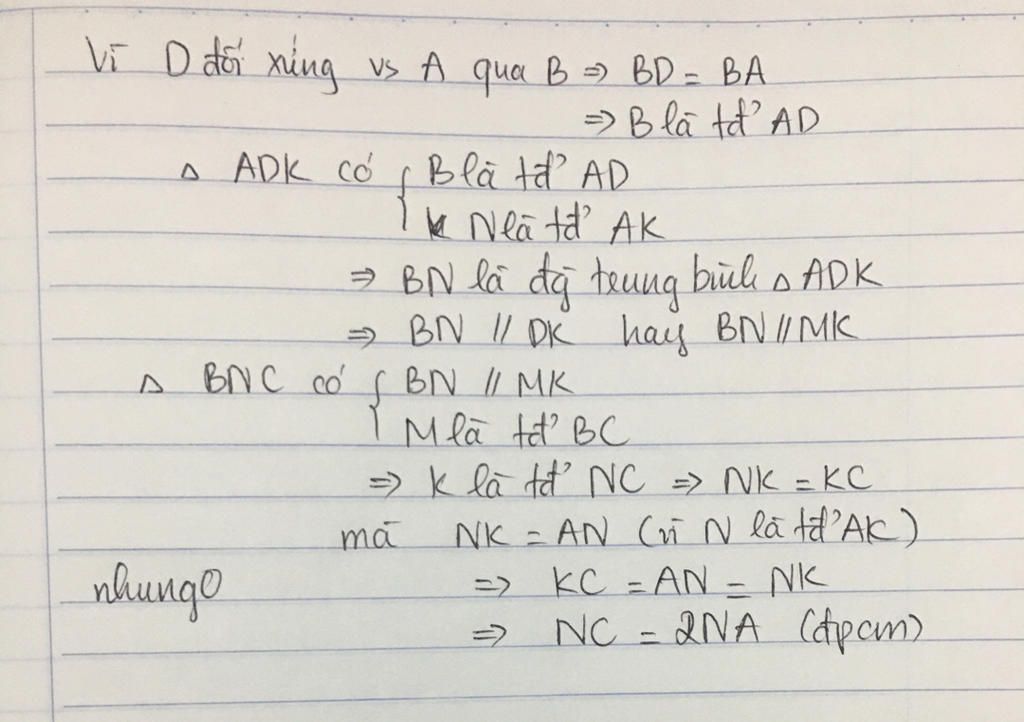 Vì D đối xứng vs A qua B ⇒ BD = BA
⇒ B là tđ' AD
△ ADK có { B là tđ' AD
N là tđ' AK
⇒ BN là đg̀ trung bình △ ADK
⇒ BN // DK hay BN // MK
△ BNC có { BN // MK
M là tđ' BC
⇒ K là tđ' NC ⇒ NK = KC
mà NK = AN (vì N là tđ' AK)
nhung0 ⇒ KC = AN = NK
⇒ NC = 2NA (đpcm)